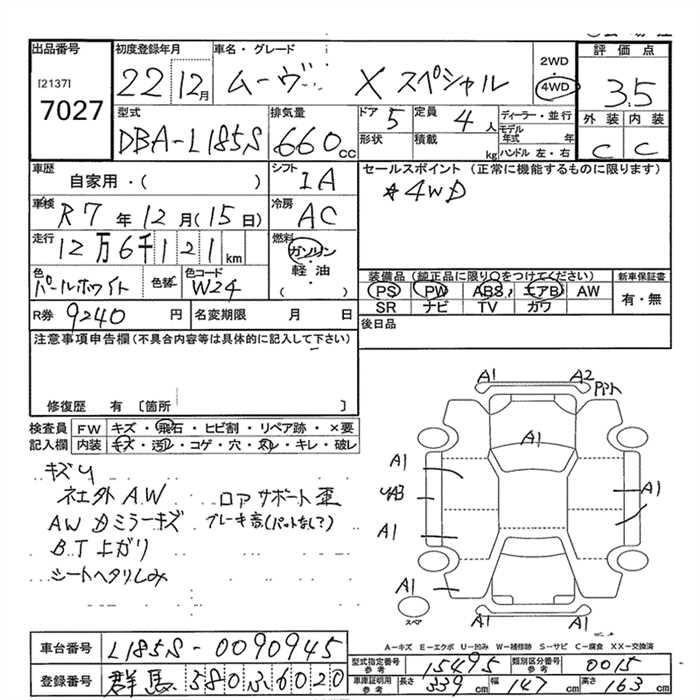 出品番号 初度登録年月 車名・グレード 評価点
[2137] 7027 22 12月 ムーヴ X スペシャル 2WD 4WD 3.5
型式 排気量 ドア 5 定員 4人 ディーラー・並行 外装 内装
DBA-L185S 660cc 形状 積載 kg モデル年式 年 ハンドル 左・右 C C
車歴 自家用・( ) シフト IA セールスポイント (正常に機能するものに限ります)
車検 R7年12月(15日) 冷房 AC ☆4WD
走行 12万6千121km 燃料 ガソリン・軽油・( )
色 パールホワイト 色替 色コード W24 装備品 (純正品に限り○をつけてください) 新車保証書
PS PW ABS エアB AW 有・無
R券 9240円 名変期限 月 日 SR ナビ TV カワ
注意事項申告欄(不具合内容等は具体的に記入して下さい) 後日品
修復歴 有 〔箇所 〕
検査員記入欄 FW キズ・飛石・ヒビ割・リペア跡・×要
内装 キズ・汚レ・コゲ・穴・スレ・キレ・破レ
キズU
ネ土外 A.W ロアサポート歪
AW Dミラーキズ ブレーキ高(パットなし?)
B.T 上ガリ
シートヘタリしみ
A1 A2
A1
A1 A1
A1
A1
A1
スペア
A1
A-キズ E-エクボ U-凹み W-補修跡 S-サビ C-腐食 XX-交換済
車台番号 L185S-0090945 型式指定番号 参考 15495 類別区分番号 参考 0015
登録番号 群馬 580 3 6020 車庫証明用 参考 長さ 339cm 幅 147cm 高さ 163cm